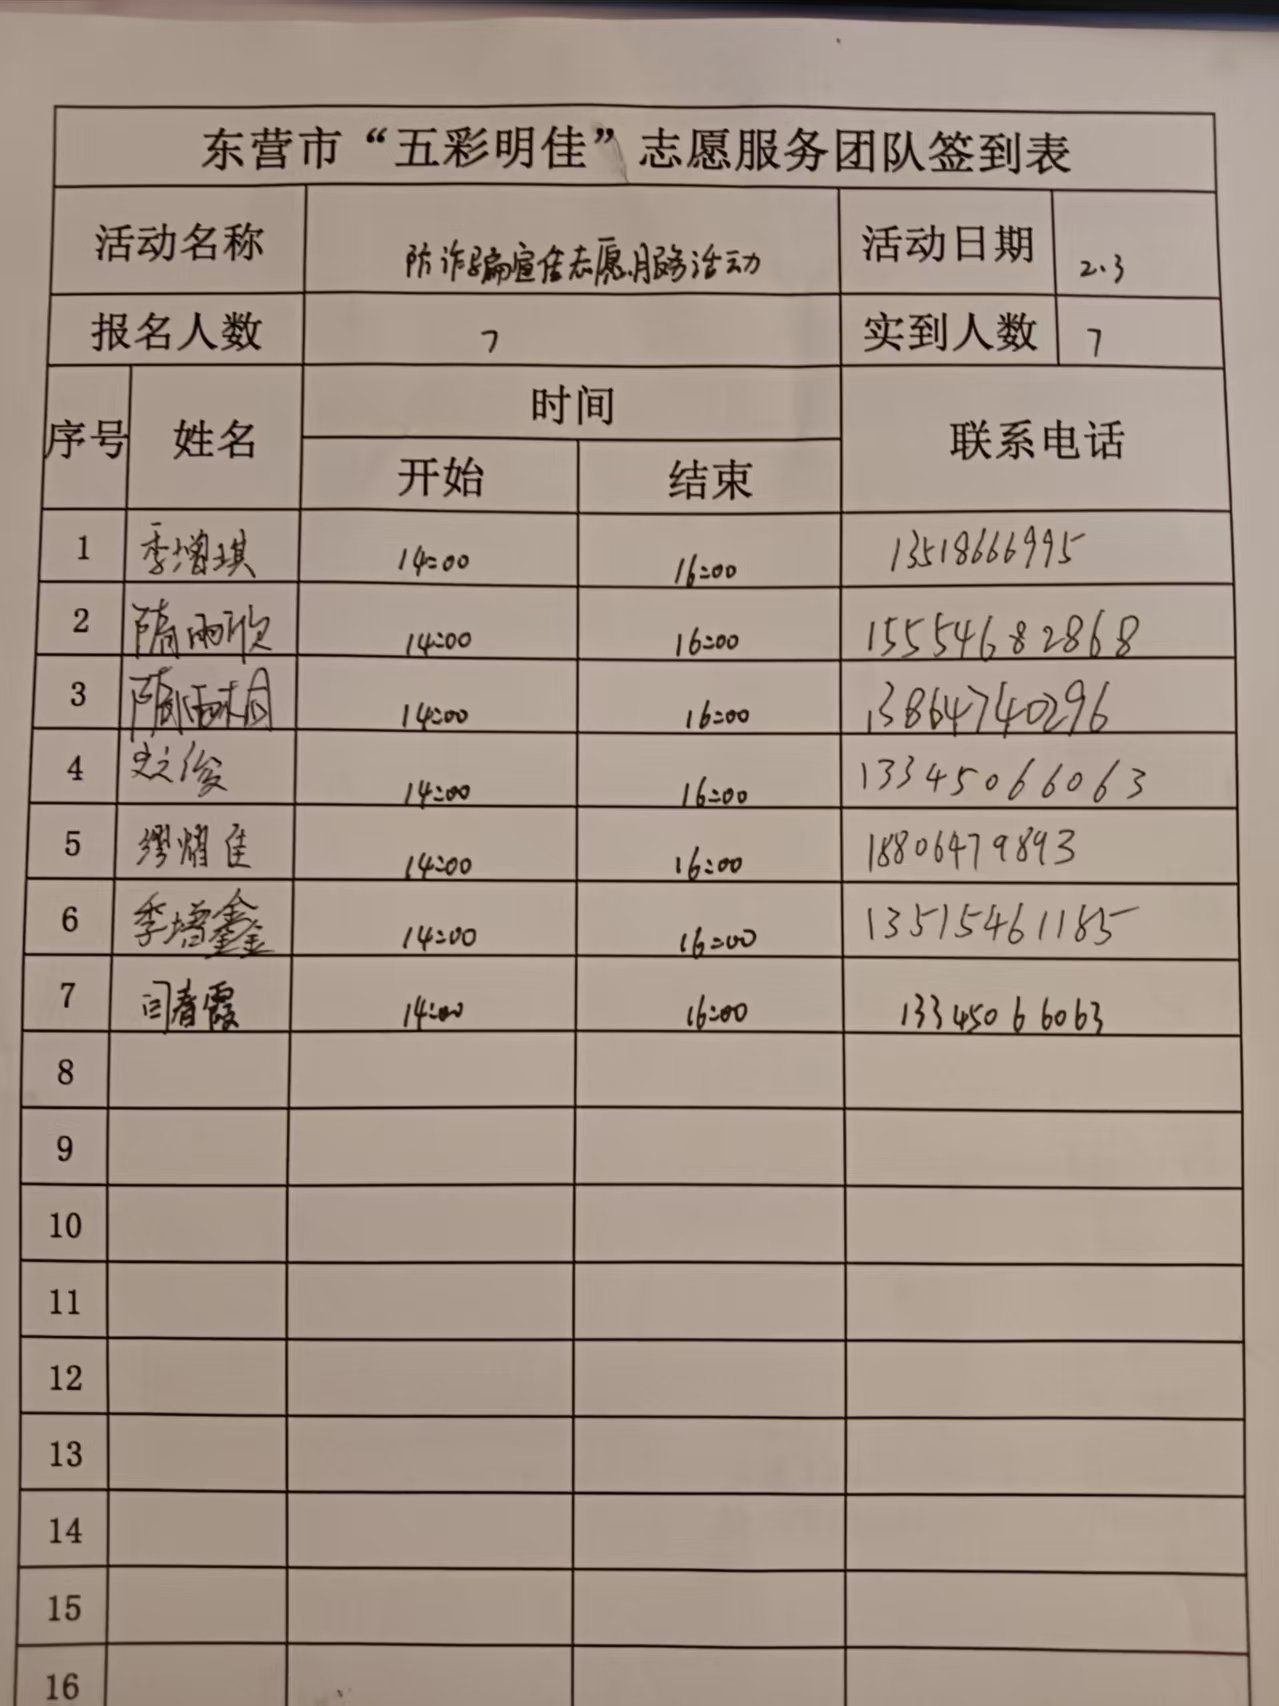 东营市“五彩明佳”志愿服务团队签到表
活动名称 防诈骗宣传志愿服务活动 活动日期 2.3
报名人数 7 实到人数 7
序号 姓名 时间 联系电话
开始 结束
1 季增琪 14:00 16:00 13518666995
2 隋雨欣 14:00 16:00 15554682868
3 隋雨桐 14:00 16:00 13864740296
4 14:00 16:00 13345066063
5 缪耀佳 14:00 16:00 18806479893
6 季增鑫 14:00 16:00 13515461185
7 闫春霞 14:00 16:00 13345066063
8
9
10
11
12
13
14
15
16